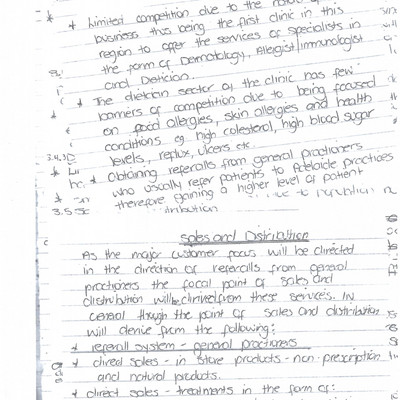 * Limited competition due to the
business thus being the first clinic in this
region to offer the services of specialists in
the form of Dermatology, Allergist/Immunologist
and Dietician.
* The dietician sector of the clinic has few
barriers of competition due to being focused
on food allergies, skin allergies and health
conditions eg high colesterol, high blood sugar
levels, reflux, ulcers etc.
* Obtaining referralls from general practioners
who usually refer patients to Adelaide practices
therefore gaining a higher level of patient
3.4.3
3.5
Sales and Distribution
As the major customer focus will be directed
in the direction of referalls from general
practioners the focal point of sales and
distribution will be dirived from these services. IN
general though the point of sales and distribution
will derive from the following:
* referall system - general practioners
* direct sales - in store products - non-prescription
and natural products.
* direct sales - treatments in the form of: